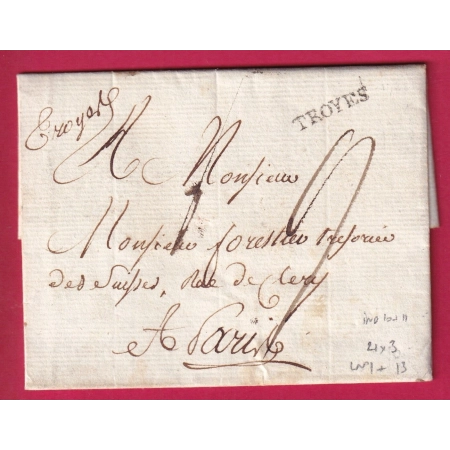 Troyes
TROYES
A Monsieur
Monsieur forestier tresorier
des Suisses, Rue de Clery
A Paris
9
IND 10 11
21 x 3
13